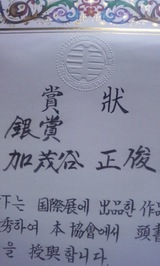 賞狀
銀賞
加茂谷 正俊
下는 国際展에 出品한 作品
秀하여 本 協會에서 頭書
을 授與합니다